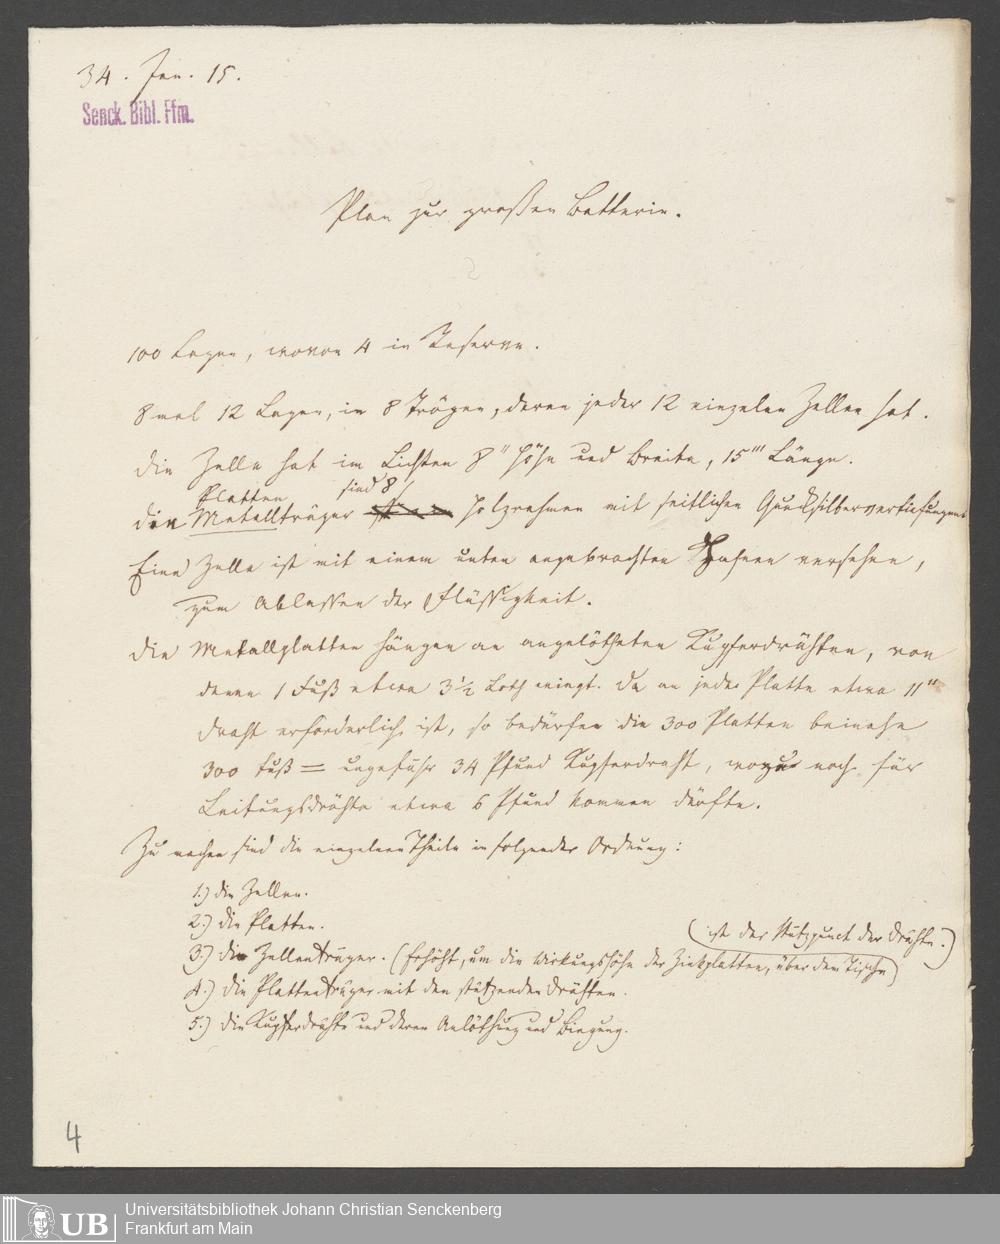 34. Jan. 15.
Senck. Bibl. Ffm.
Plan zur großen Batterie.
100 Lagen, wovon 4 in Reserve.
8 mal 12 Lagen, in 8 Trögen, deren jeder 12 einzelne Zellen hat.
die Zelle hat im Lichten 8" Höhe und Breite, 15''' Länge.
Platten sind 8
die Metallträger Holzrahmen mit seitlichen Quecksilbervertiefungen
Eine Zelle ist mit einem unten angebrachten Hahnen versehen,
zum Ablassen der Flüssigkeit.
die Metallplatten hängen an angelötheten Kupferdrähten, von
denen 1 Fuß etwa 3½ Loth wiegt. Da an jeder Platte etwa 11"
Draht erforderlich ist, so bedürfen die 300 Platten beinahe
300 Fuß = ungefähr 34 Pfund Kupferdraht, wozu noch für
Leitungsdrähte etwa 6 Pfund kommen dürfte.
Zu machen sind die einzelnen Theile in folgender Ordnung:
1.) die Zellen.
2.) die Platten.
(ist der Stützpunct der Drähte.)
3.) die Zellenträger. (Erhöht, um die Wirkungshöhe der Zinkplatten, über dem Tische)
4.) die Plattenträger mit den stützenden Drähten.
5.) die Kupferdrähte und deren Anlöthung und Biegung.
4
UB
Universitätsbibliothek Johann Christian Senckenberg
Frankfurt am Main